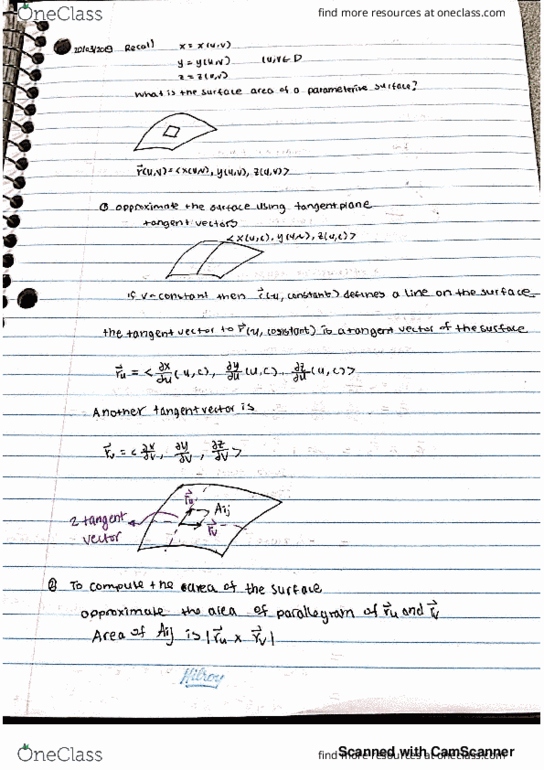 OneClass
find more resources at oneclass.com
20/03/2019 Recall x = x(u,v)
y = y(u,v) (u,v) ∈ D
z = z(u,v)
What is the surface area of a parameterive surface?
r⃗(u,v) = <x(u,v), y(u,v), z(u,v)>
① approximate the surface using tangent plane
tangent vectors
<x(u,c), y(u,c), z(u,c)>
if v = constant then r⃗(u, constant) defines a line on the surface
the tangent vector to r⃗(u, constant) is a tangent vector of the surface
r⃗u = <∂x/∂u (u,c), ∂y/∂u (u,c), ∂z/∂u (u,c)>
Another tangent vector is
r⃗v = <∂x/∂v, ∂y/∂v, ∂z/∂v>
r⃗u
Aij
2 tangent
vector
r⃗v
② To compute the area of the surface
approximate the area of parallegram of r⃗u and r⃗v
Area of Aij is |r⃗u x r⃗v|
Hilroy
Scanned with CamScanner
OneClass
find more resources at oneclass.com